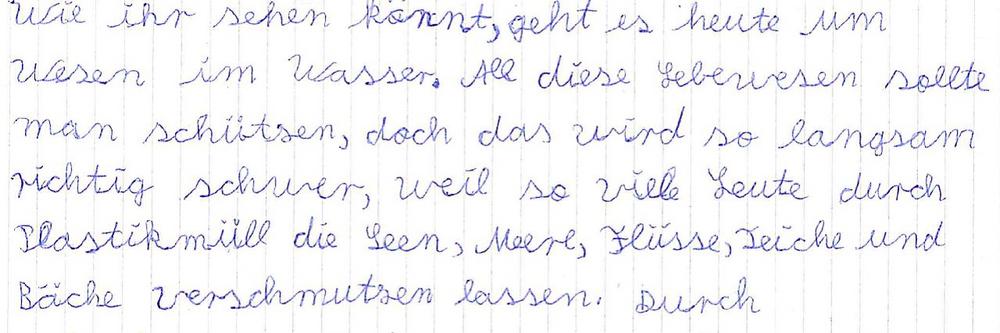 Wie ihr sehen könnt, geht es heute um
Wesen im Wasser. All diese Lebewesen sollte
man schützen, doch das wird so langsam
richtig schwer, weil so viele Leute durch
Plastikmüll die Seen, Meere, Flüsse, Teiche und
Bäche verschmutzen lassen. Durch